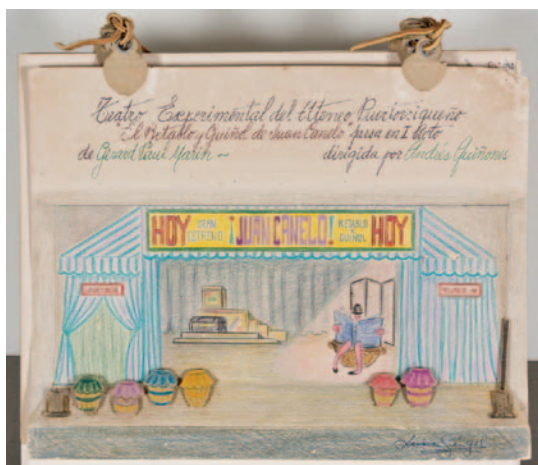 Teatro Experimental del Ateneo Puertorriqueño
"El Retablo y Guiñol de Juan Canelo" farsa en I Acto
de Gerard Paul Marín ~ dirigida por Andrés Quiñones
HOY GRAN ESTRENO ¡JUAN CANELO! RETABLO Y GUIÑOL HOY